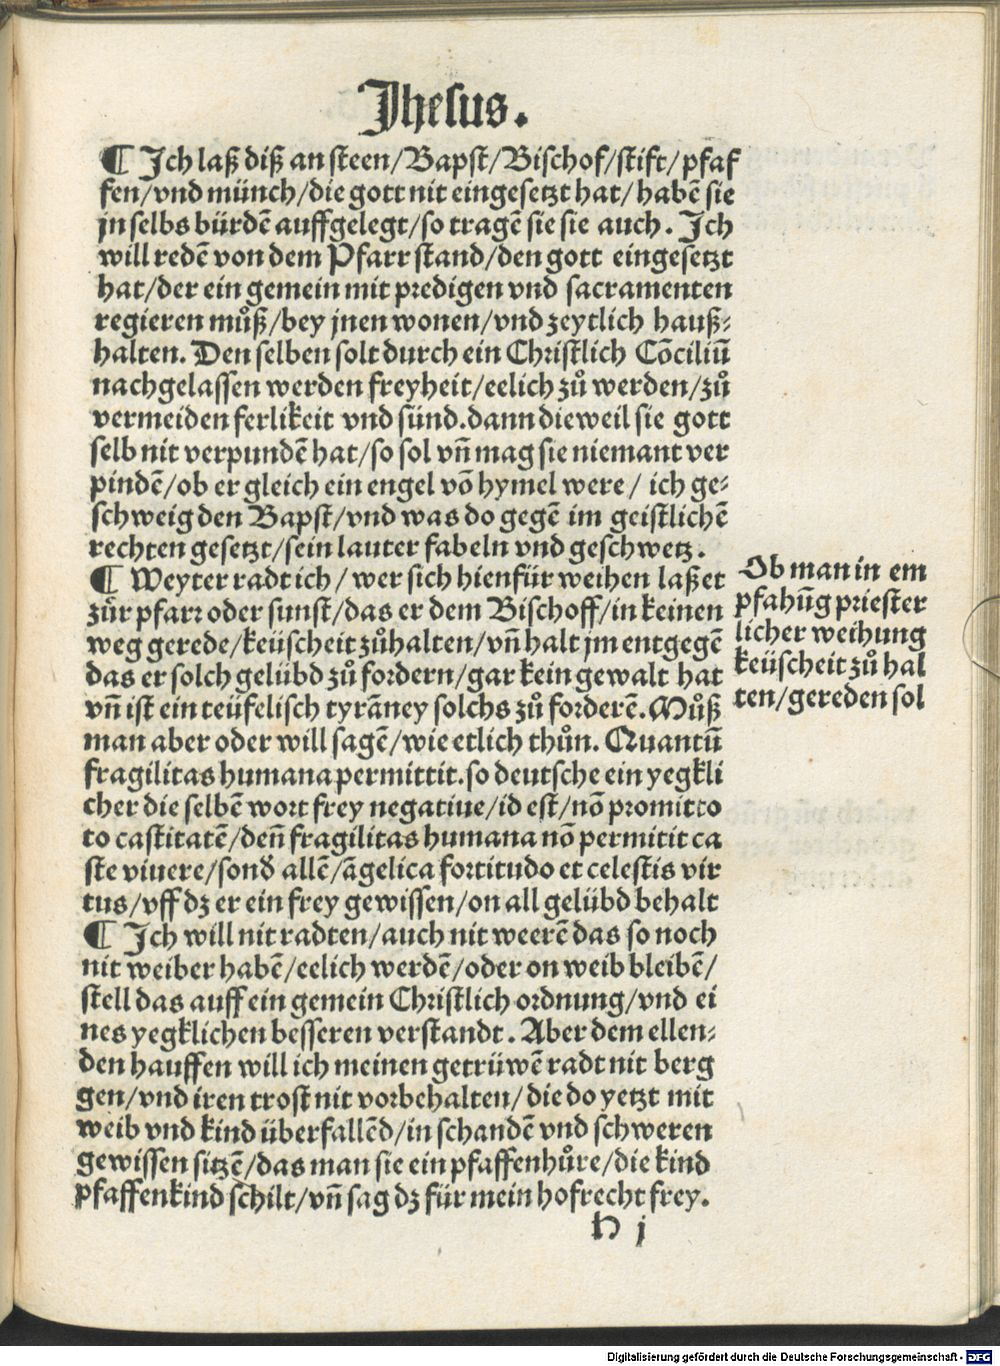 Jhesus.
¶ Jch laß diß an steen/Bapst/Bischof/stift/pfaf
fen/vnd münch/die gott nit eingesetzt hat/habē sie
jn selbs bürdē auffgelegt/so tragē sie sie auch. Jch
will redē von dem Pfarr stand/den gott eingesetzt
hat/der ein gemein mit predigen vnd sacramenten
regieren muͦß/bey jnen wonen/vnd zeytlich hauß⸗
halten. Den selben solt durch ein Christlich Cōciliū
nachgelassen werden freyheit/eelich zuͦ werden/zuͦ
vermeiden ferlikeit vnd sünd.dann dieweil sie gott
selb nit verpundē hat/so sol vn̄ mag sie niemant ver
pindē/ob er gleich ein engel vō hymel were/ ich ge⸗
schweig den Bapst/vnd was do gegē im geistlichē
rechten gesetzt/sein lauter fabeln vnd geschwetz.
¶ Weyter radt ich/wer sich hienfür weihen laßet
zuͦr pfarr oder sunst/das er dem Bischoff/in keinen
weg gerede/keüscheit zuͦhalten/vn̄ halt jm entgegē
das er solch gelübd zuͦ fordern/gar kein gewalt hat
vn̄ ist ein teüfelisch tyrāney solchs zuͦ forderē.Muͦß
man aber oder will sagē/wie etlich thuͦn. Quantū
fragilitas humana permittit.so deutsche ein yegkli
cher die selbē wort frey negatiue/id est/nō promitto
to castitatē/den̄ fragilitas humana nō permitit ca
ste viuere/sonď allē/āgelica fortitudo et celestis vir
tus/vff dz er ein frey gewissen/on all gelübd behalt
¶ Jch will nit radten/auch nit weerē das so noch
nit weiber habē/eelich werdē/oder on weib bleibē/
stell das auff ein gemein Christlich ordnung/vnd ei
nes yegklichen besseren verstandt. Aber dem ellen⸗
den hauffen will ich meinen getrüwē radt nit berg
gen/vnd iren trost nit vorbehalten/die do yetzt mit
weib vnd kind überfallēd/in schandē vnd schweren
gewissen sitzē/das man sie ein pfaffenhuͦre/die kind
pfaffenkind schilt/vn̄ sag dz für mein hofrecht frey.
H j
Ob man in em
pfahūg priester
licher weihung
keüscheit zuͦ hal
ten/gereden sol
Digitalisierung gefördert durch die Deutsche Forschungsgemeinschaft - DFG